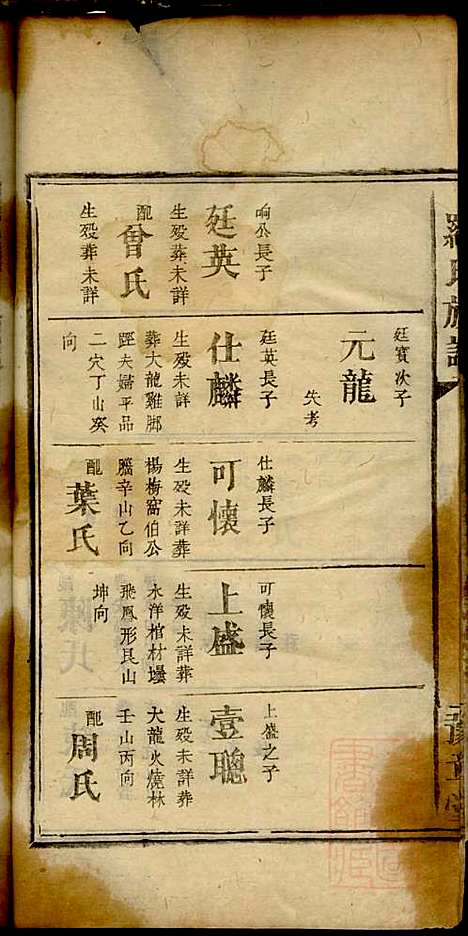 响公長子
廷英
生殁葬未詳
配
曾氏
生殁葬未詳
廷寳次子
元龍
失考
廷英長子
仕麟
生殁未詳
葬大龍雞脚
踁夫婦平品
二穴丁山癸
向
仕麟長子
可懷
生殁未詳葬
楊梅窩伯公
腦辛山乙向
配
葉氏
可懷長子
上盛
生殁未詳葬
水洋棺材塸
飛鳳形艮山
坤向
上盛之子
壹聰
生殁未詳葬
大龍火燒林
壬山丙向
配
周氏
羅氏族譜
豫章堂